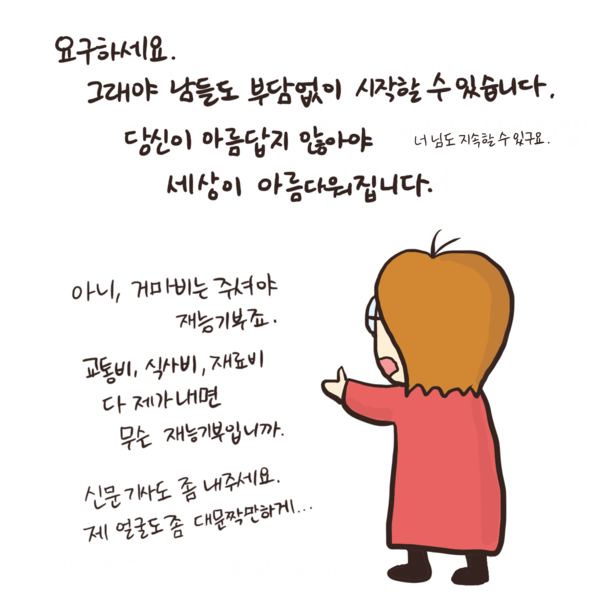 요구하세요.
그래야 남들도 부담없이 시작할 수 있습니다.
당신이 아름답지 않아야
너님도 지속할 수 있구요.
세상이 아름다워집니다.
아니, 거마비는 주셔야
재능기부죠.
교통비, 식사비, 재료비
다 제가 내면
무슨 재능기부입니까.
신문기사도 좀 내주세요.
제 얼굴도 좀 대문짝만하게...